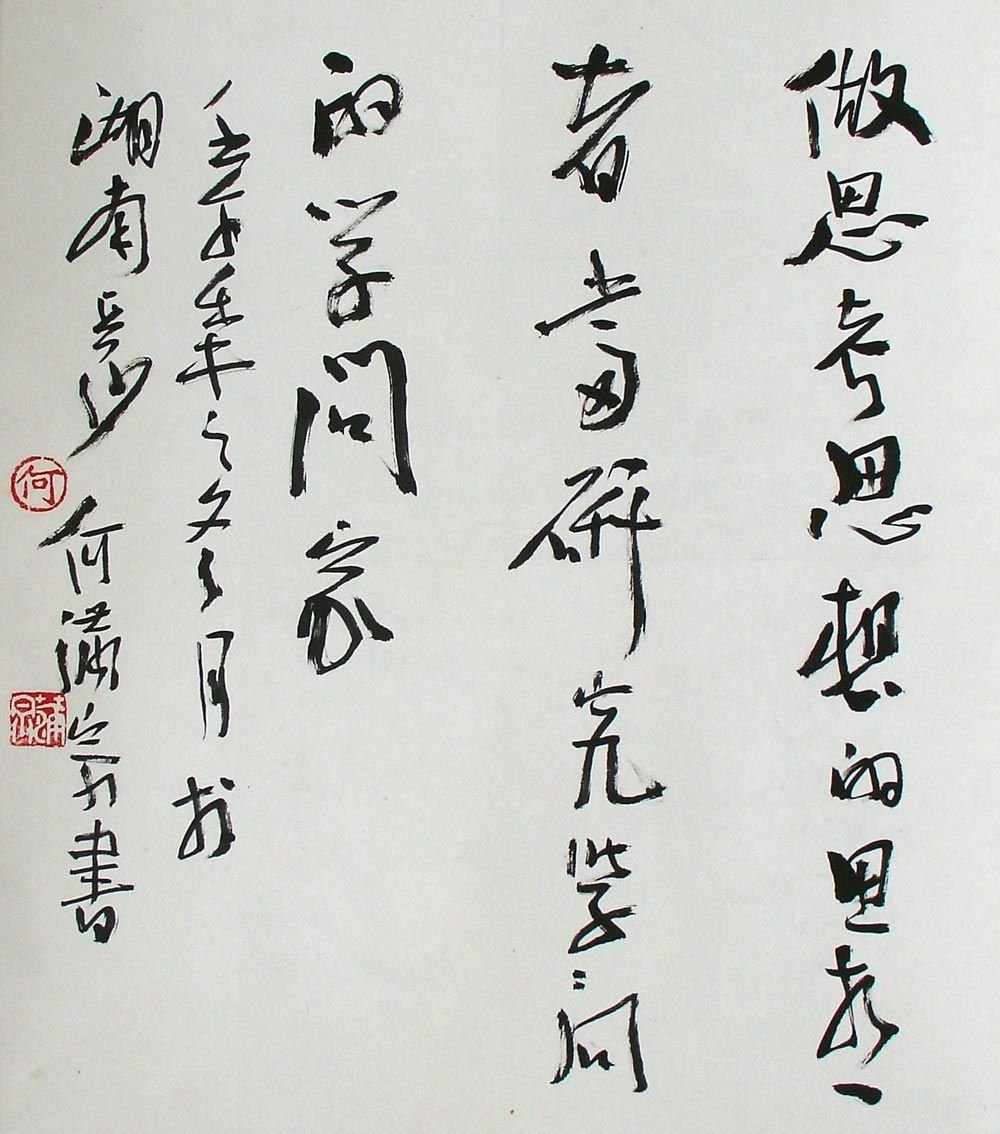 做思考思想的思
者当研究学问
的学问家
壬午年之冬月於
湖南長沙 何满宗書
何